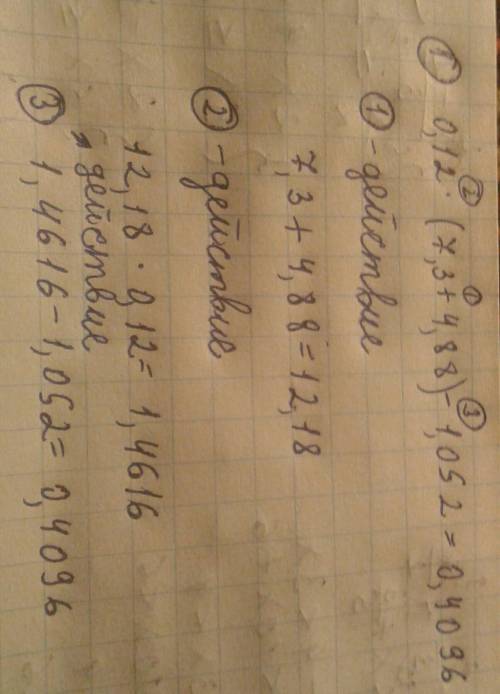 ① 0,12 ·② (7,3 +① 4,88) -③ 1,052 = 0,4096
① - действие
7,3 + 4,88 = 12,18
② - действие
12,18 · 0,12 = 1,4616
" действие
③ 1,4616 - 1,052 = 0,4096